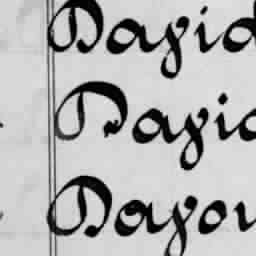 Dayid
Dayid
Dayou